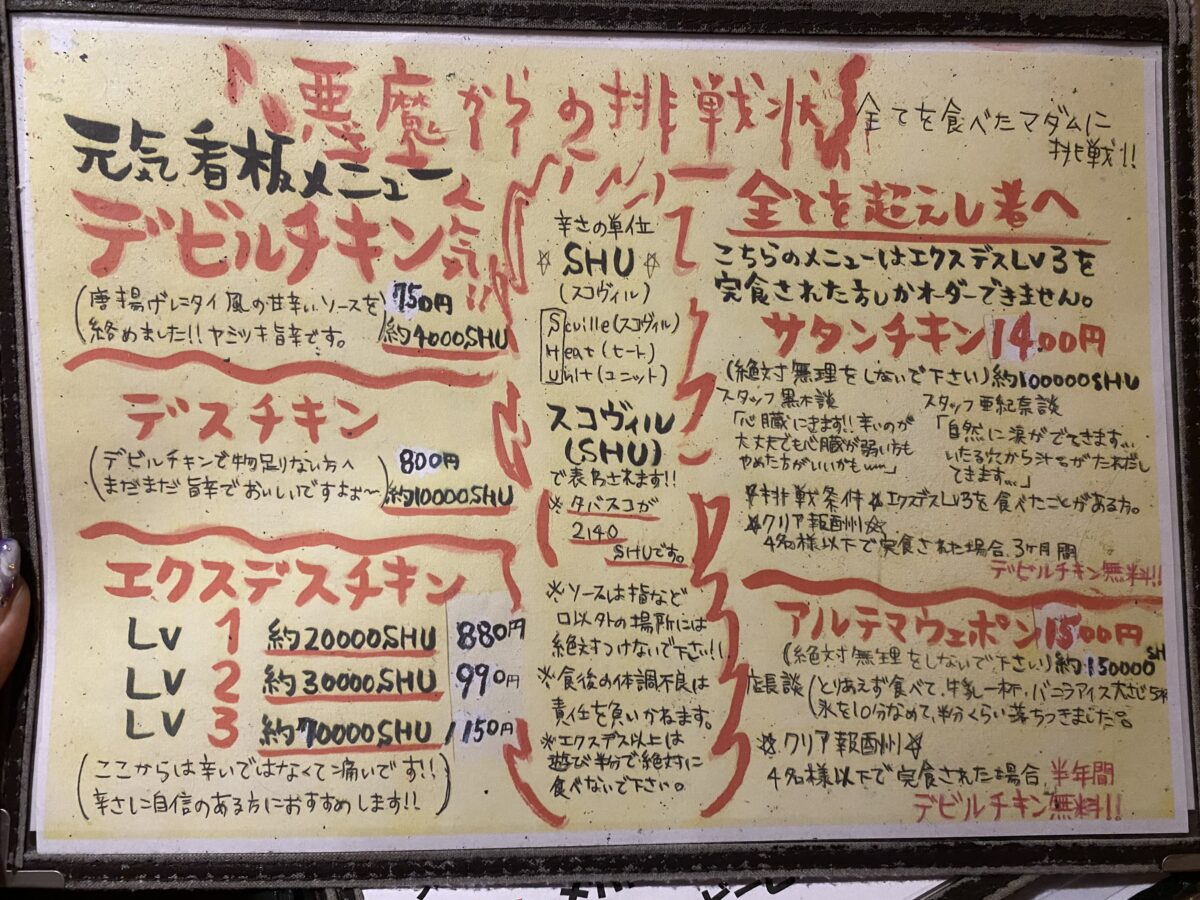 悪魔からの挑戦状
全てを食べたマダムに
挑戦!!
元気看板メニュー
デビルチキン人気!!
(唐揚げにタイ風の甘辛いソースを
絡めました!!ヤミツキ旨辛です。)
750円
約4000SHU
デスチキン
(デビルチキンで物足りない方へ
まだまだ旨辛でおいしいですよぉ〜)
800円
約10000SHU
エクスデスチキン
Lv 1 約20000SHU 880円
Lv 2 約30000SHU 990円
Lv 3 約70000SHU 1150円
(ここからは辛いではなくて痛いです!!
辛さに自信のある方におすすめします!!)
辛さの単位
☆SHU☆
(スコヴィル)
Scville(スコヴィル)
Heat(ヒート)
Unit(ユニット)
スコヴィル
(SHU)
で表名されます!!
※タバスコが
2140
SHUです。
※ソースは指など
口以外の場所には
絶対つけないで下さい!!
※食後の体調不良は
責任を負いかねます。
※エクスデス以上は
遊び半分で絶対に
食べないで下さい。
全てを超えし者へ
こちらのメニューはエクスデスLv3を
実食された方しかオーダーできません。
サタンチキン1400円
(絶対無理をしないで下さい)約100000SHU
スタッフ黒木談
「心臓にきます!!辛いのが
大丈夫でも心臓が弱い方も
やめた方がいいかも」
スタッフ亜紀奈談
「自然に涙がでてきます…
いたる穴から汁がたれだし
てきます…」
挑戦条件☆エクスデスLv3を食べたことがある方。
☆クリア報酬☆
4名様以下で実食された場合、3ヶ月間
デビルチキン無料!!
アルテマウェポン1500円
(絶対無理をしないで下さい)約150000SH
店長談(とりあえず食べて、牛乳一杯、バニラアイス大さじ5杯
氷を10分なめて、半分くらい落ちつきました。
☆クリア報酬☆
4名様以下で実食された場合、半年間
デビルチキン無料!!